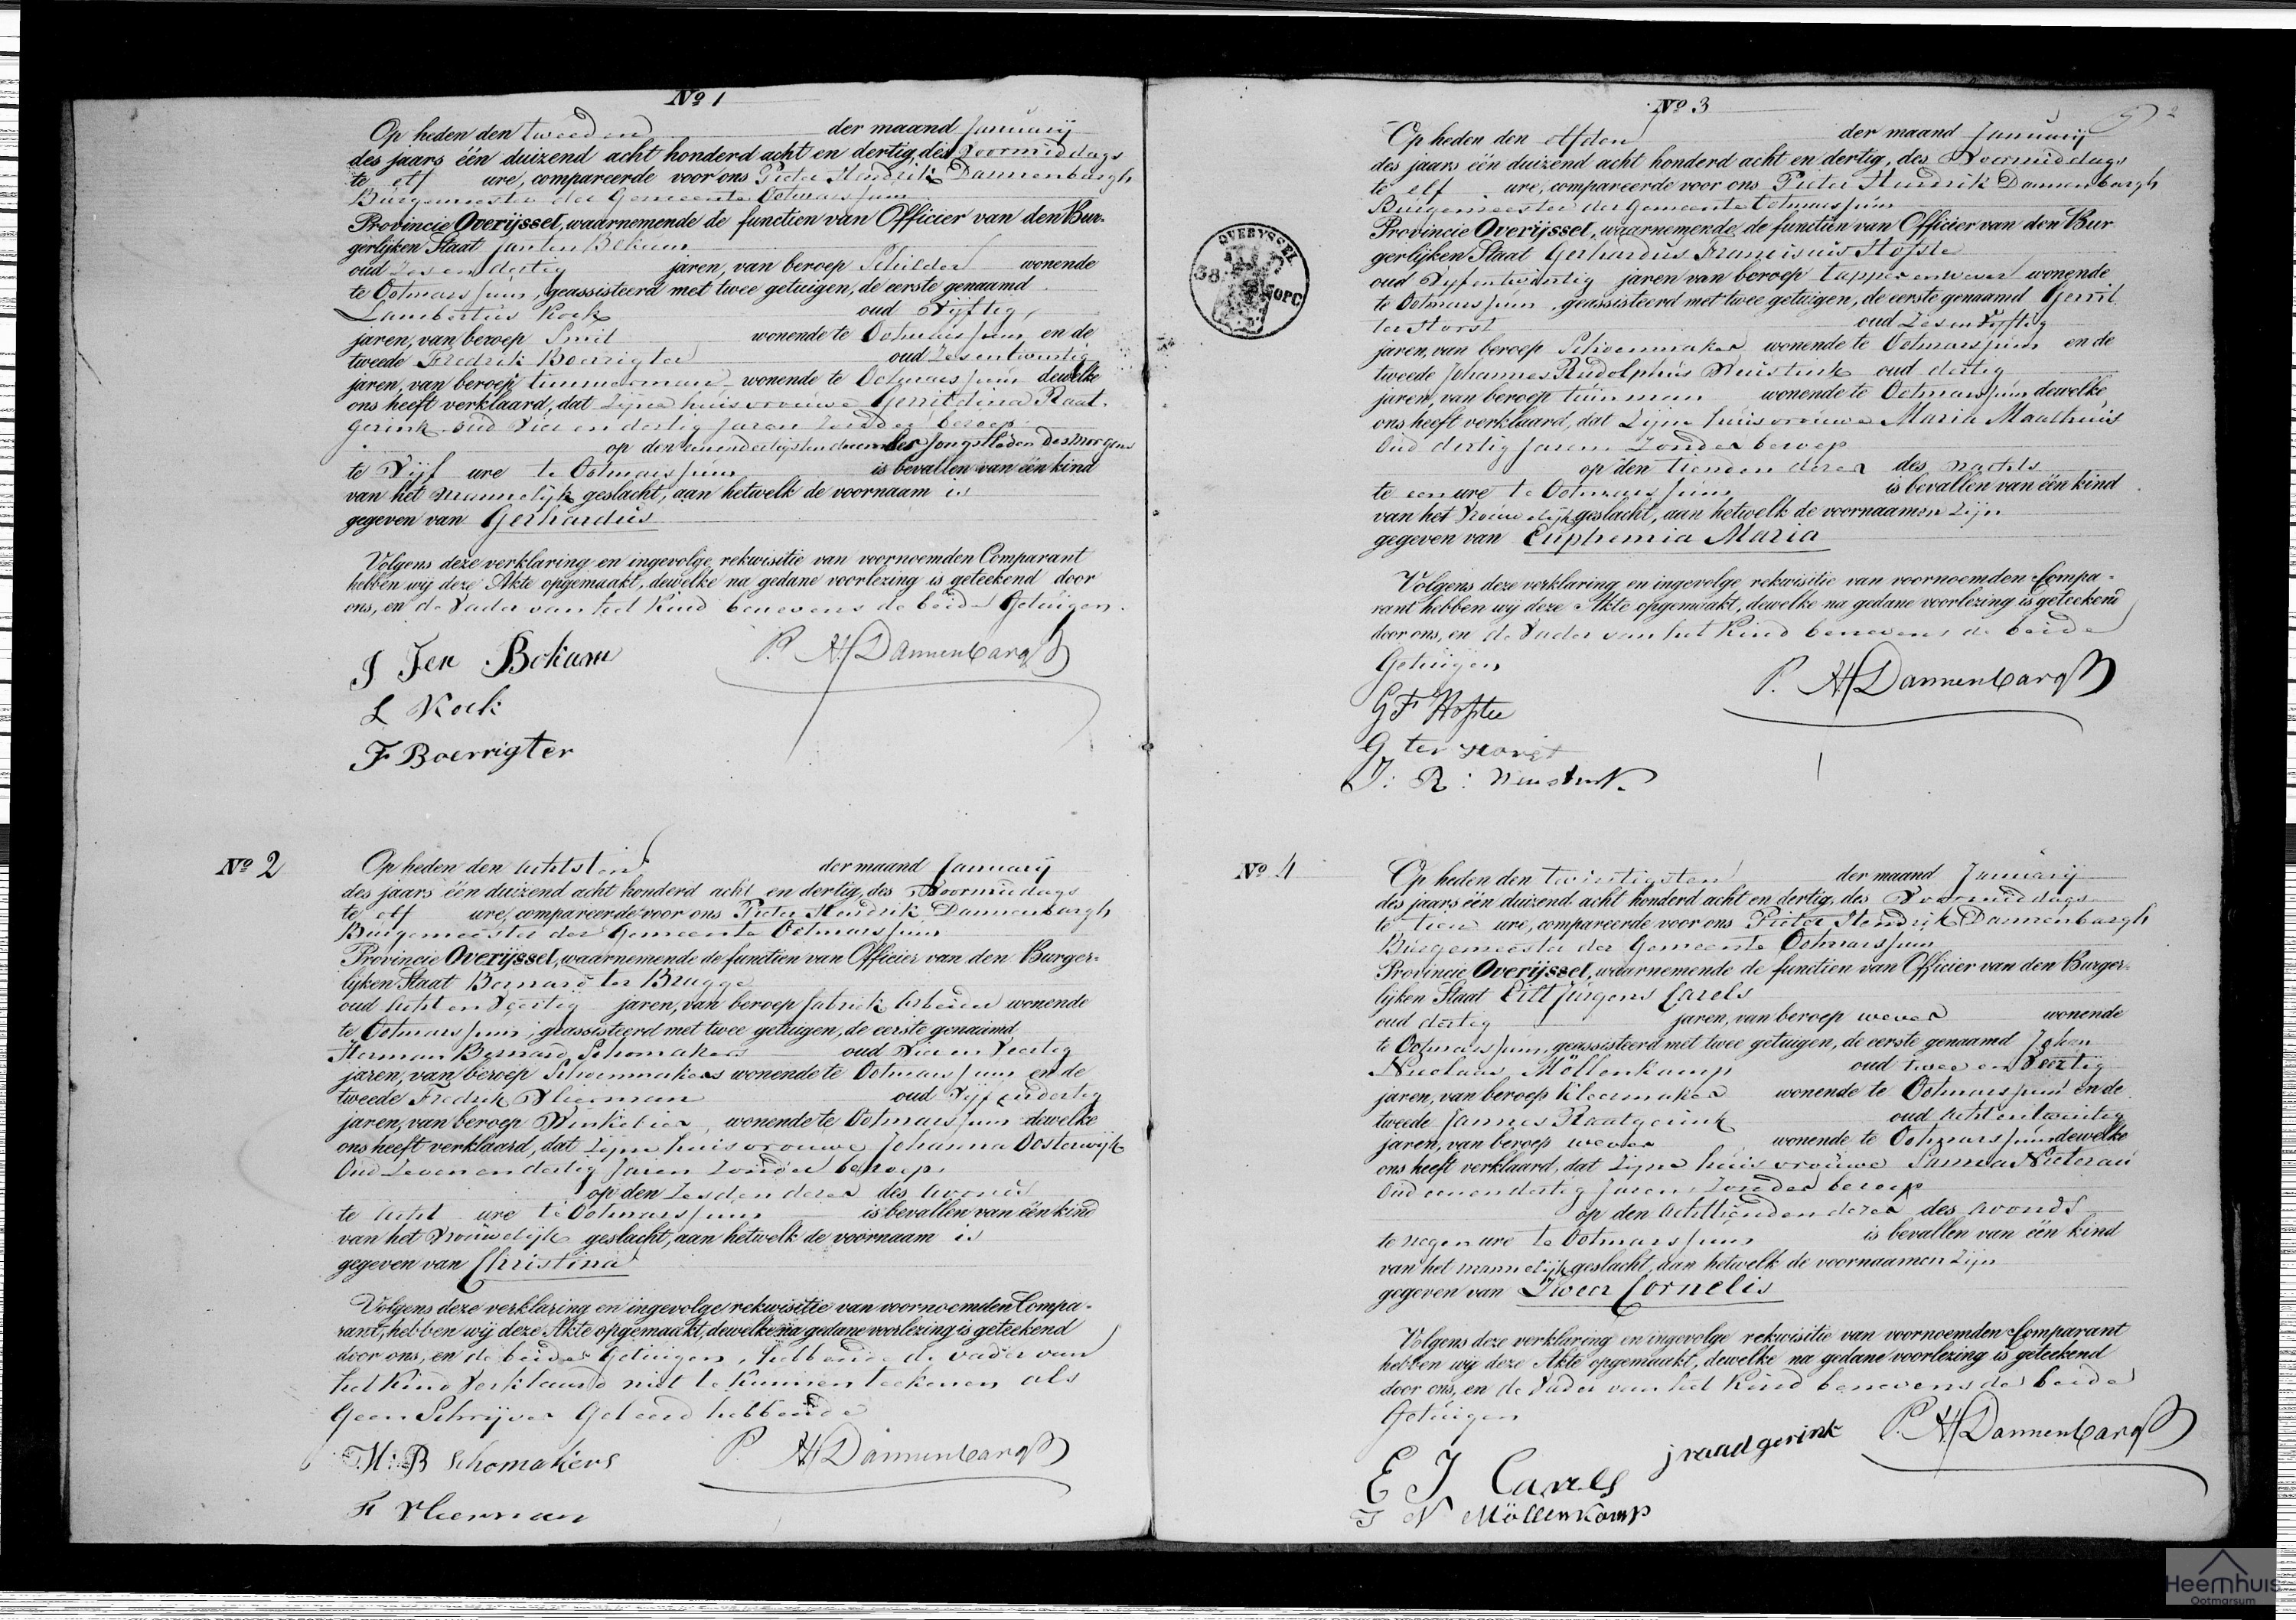 Nº 1
Op heden den tweeden der maand Januarij
des jaars één duizend acht honderd acht en dertig, des Voormiddags
te elf ure, compareerde voor ons Pieter Hendrik Dannenbargh
Burgemeester der Gemeente Ootmarssum
Provincie Overijssel, waarnemende de functien van Officier van den Bur-
gerlijken Staat Jan ten Bokum
oud Zes en dertig jaren, van beroep Schilder wonende
te Ootmarssum, geassisteerd met twee getuigen, de eerste genaamd
Lambertus Kock oud Vijftig
jaren, van beroep Smit wonende te Ootmarssum en de
tweede Fredrik Boerrigter oud Zesentwintig
jaren, van beroep timmerman wonende te Ootmarssum dewelke
ons heeft verklaard, dat Zijne huisvrouwe Gerritdina Raat-
gerink oud Vier en dertig Jaren Zonder beroep
op den eenendertigsten december Jongstleden des morgens
te Vijf ure te Ootmarssum is bevallen van één kind
van het mannelijk geslacht, aan hetwelk de voornaam is
gegeven van Gerhardus
Volgens deze verklaring en ingevolge rekwisitie van voornoemden Comparant
hebben wij deze Akte opgemaakt, dewelke na gedane voorlezing is geteekend door
ons, en de Vader van het Kind benevens de beide Getuigen.
J Ten Bokum P. H. Dannenbargh
L Kock
F Boerrigter
Nº 2
Op heden den achtsten der maand Januarij
des jaars één duizend acht honderd acht en dertig, des Voormiddags
te elf ure, compareerde voor ons Pieter Hendrik Dannenbargh
Burgemeester der Gemeente Ootmarssum
Provincie Overijssel, waarnemende de functien van Officier van den Burger-
lijken Staat Bernard ter Brugge
oud Acht en Veertig jaren, van beroep fabriek Arbeider wonende
te Ootmarssum, geassisteerd met twee getuigen, de eerste genaamd
Herman Bernard Schomakers oud Vier en Veertig
jaren, van beroep Schoenmakers wonende te Ootmarssum en de
tweede Fredrik Vlierman oud Vijfendertig
jaren, van beroep Winkelier wonende te Ootmarssum dewelke
ons heeft verklaard, dat Zijne huisvrouwe Johanna Oosterwijk
Oud Zeven en dertig Jaren Zonder beroep
op den Zesden dezer des Avonds
te Acht ure te Ootmarssum is bevallen van één kind
van het Vrouwelijk geslacht, aan hetwelk de voornaam is
gegeven van Christina
Volgens deze verklaring en ingevolge rekwisitie van voornoemden Compa-
rant, hebben wij deze Akte opgemaakt, dewelke na gedane voorlezing is geteekend
door ons, en de beide Getuigen, hebbende de vader van
het Kind Verklaard niet te Kunnen teekenen als
Geen Schrijven Geleerd hebbende
H: B Schomakers P. H. Dannenbargh
F Vlierman
OVERYSSEL
38
Nº 3
Op heden den elfden der maand Januarij
des jaars één duizend acht honderd acht en dertig, des Voormiddags
te elf ure, compareerde voor ons Pieter Hendrik Dannenbargh
Burgemeester der Gemeente Ootmarssum
Provincie Overijssel, waarnemende de functien van Officier van den Bur
gerlijken Staat Gerhardus Franciscus Hofste
oud Vijfentwintig jaren van beroep tapper en wever wonende
te Ootmarssum, geassisteerd met twee getuigen, de eerste genaamd Gerrit
ter Horst oud Zes en Vijftig
jaren, van beroep Schoenmaker wonende te Ootmarssum en de
tweede Johannes Rudolphus Neustink oud dertig
jaren, van beroep tuinman wonende te Ootmarssum dewelke
ons heeft verklaard, dat Zijne huisvrouwe Maria Maathuis
Oud dertig Jaren Zonder beroep
op den tienden dezer des nachts
te een ure te Ootmarssum is bevallen van één kind
van het Vrouwelijk geslacht, aan hetwelk de voornaamen Zijn
gegeven van Euphemia Maria
Volgens deze verklaring en ingevolge rekwisitie van voornoemden Compa-
rant hebben wij deze Akte opgemaakt, dewelke na gedane voorlezing is geteekend
door ons, en de Vader van het Kind benevens de beide
Getuigen
P. H. Dannenbargh
G F Hofste
G ter Horst
J: R: Neustink
Nº 4
Op heden den twintigsten der maand Januarij
des jaars één duizend acht honderd acht en dertig, des Voormiddags
te tien ure, compareerde voor ons Pieter Hendrik Dannenbargh
Burgemeester der Gemeente Ootmarssum
Provincie Overijssel, waarnemende de functien van Officier van den Burger-
lijken Staat Eilt Jurgens Carels
oud dertig jaren, van beroep wever wonende
te Ootmarssum, geassisteerd met twee getuigen, de eerste genaamd Johan
Nicolaas Möllenkamp oud twee en Veertig
jaren, van beroep Kleermaker wonende te Ootmarssum en de
tweede Jannes Raatgerink oud Acht en twintig
jaren, van beroep wever wonende te Ootmarssum dewelke
ons heeft verklaard, dat Zijne huisvrouwe
Oud eenendertig Jaren, Zonder beroep
op den Achttienden dezer des avonds
te negen ure te Ootmarssum is bevallen van één kind
van het mannelijk geslacht, aan hetwelk de voornaamen Zijn
gegeven van Zweer Cornelis
Volgens deze verklaring en ingevolge rekwisitie van voornoemden Comparant
hebben wij deze Akte opgemaakt, dewelke na gedane voorlezing is geteekend
door ons, en de Vader van het Kind benevens de beide
Getuigen
E J Carels j raadgerink P. H. Dannenbargh
J N Möllenkamp
Heemhuis
Ootmarsum